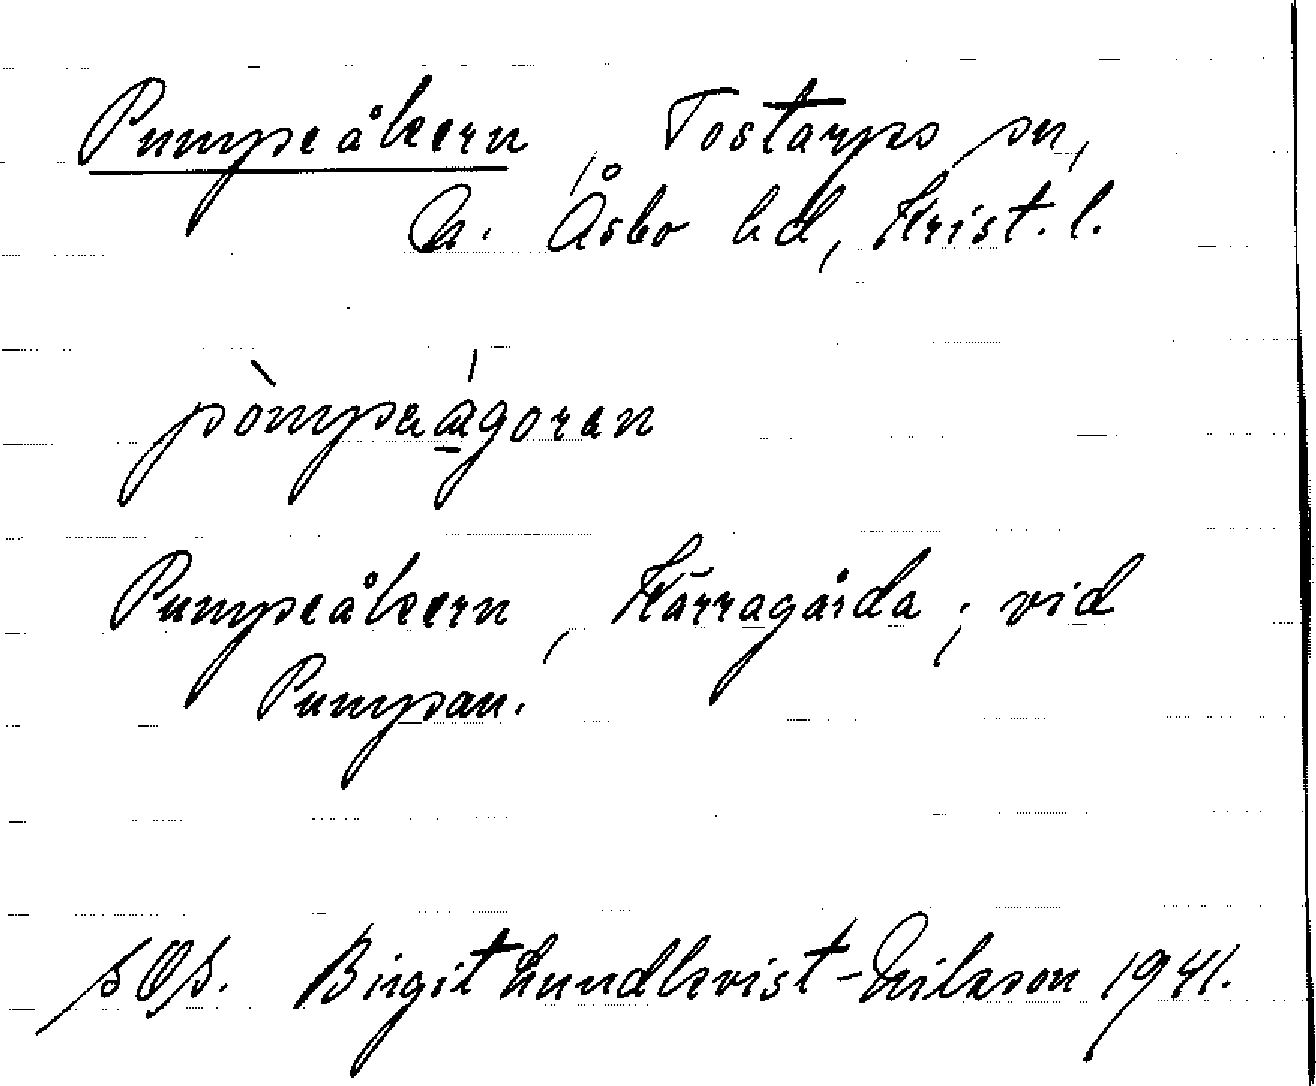 Pumpeåkern, Tostarps sn,
N. Åsbo hd, Krist. l.
pòmpeágoren
Pumpeåkern, Kärragårda; vid
Pumpan.
Birgit Lundkvist-Nilsson 1941.